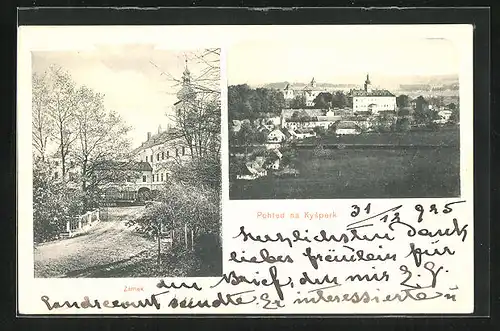 Zámek
Pohled na Kyšperk
31/12 925
Herzlichsten Dank
liebes Fräulein für
den Brief, den mir Z. G.
sandte. Er interessierte